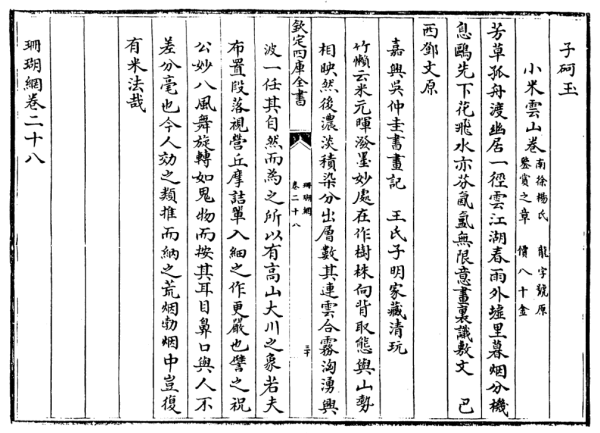 子砢玉
小米雲山卷 南徐楊氏 龍字號原
鑒賞之章 價八十金
芳草孤舟渡幽居一徑雲江湖春雨外墟里暮烟分機
息鷗先下花飛水亦芬氤氳無限意畫裏識敷文 巴
西鄧文原
嘉興吳仲圭書畫記 王氏子明家藏清玩
竹懶云米元暉潑墨妙處在作樹株向背取態與山勢
相映然後濃淡積染分出層數其連雲合霧洶湧興
欽定四庫全書
珊瑚網
卷二十八
三十
波一任其自然而為之所以有高山大川之象若夫
布置段落視營丘摩詰單入細之作更嚴也譬之祝
公妙八風舞旋轉如鬼物而按其耳目鼻口與人不
差分毫也今人効之類推而納之荒烟勃烟中豈復
有米法哉
珊瑚網卷二十八